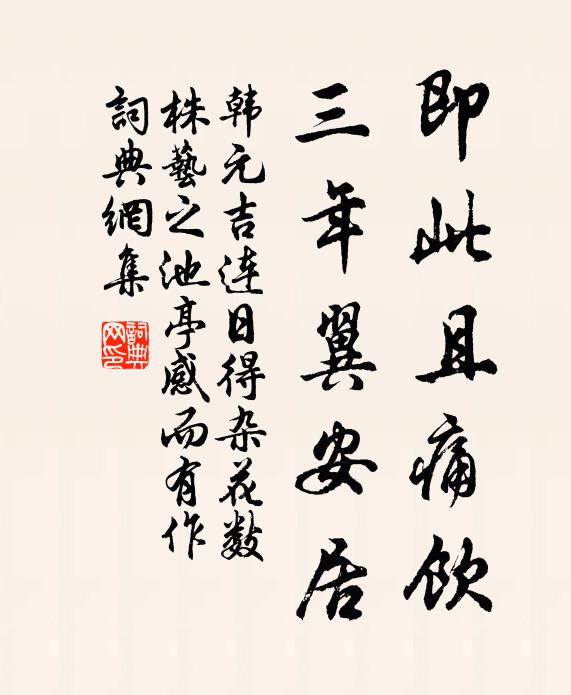 即此且痛饮
三年翼安居
韩元吉连日得杂花数
株藝之池亭感而有作
詞典網集
詞典
网印